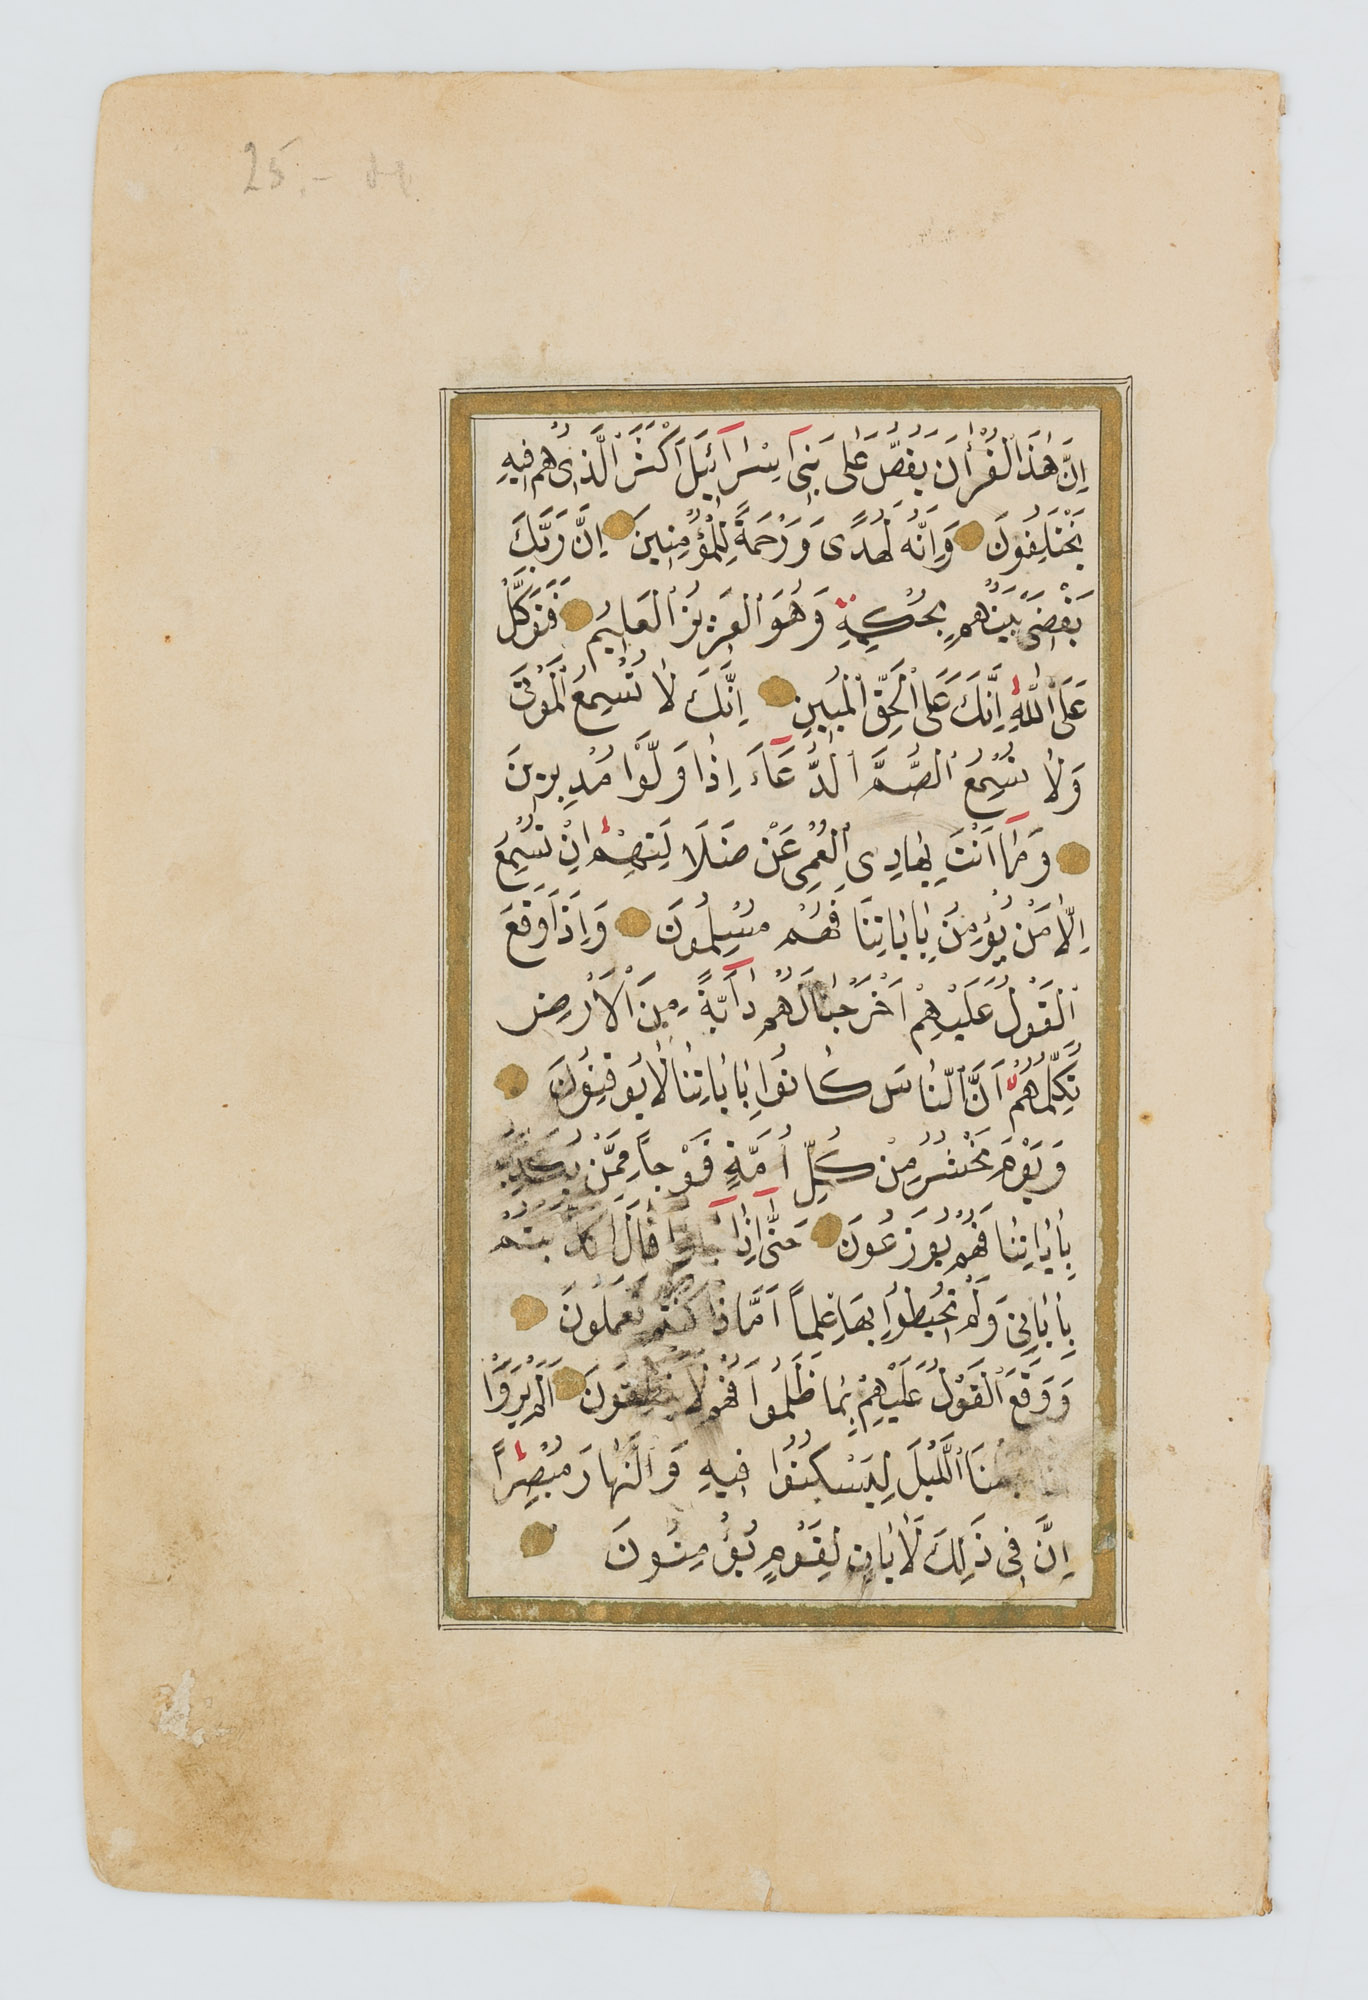 25.- M
اِنَّ هٰذَا الْقُرْاٰنَ يَقُصُّ عَلٰى بَنٖٓى اِسْرَٓائٖلَ اَكْثَرَ الَّذٖى هُمْ فٖيهِ
يَخْتَلِفُونَ وَاِنَّهُ لَهُدًى وَرَحْمَةٌ لِلْمُؤْمِنٖينَ اِنَّ رَبَّكَ
يَقْضٖى بَيْنَهُمْ بِحُكْمِهٖ وَهُوَ الْعَزٖيزُ الْعَلٖيمُ فَتَوَكَّلْ
عَلَى اللّٰهِ اِنَّكَ عَلَى الْحَقِّ الْمُبٖينِ اِنَّكَ لَا تُسْمِعُ الْمَوْتٰى
وَلَا تُسْمِعُ الصُّمَّ الدُّعَٓاءَ اِذَا وَلَّوْا مُدْبِرٖينَ
وَمَٓا اَنْتَ بِهَادِى الْعُمْىِ عَنْ ضَلَالَتِهِمْ اِنْ تُسْمِعُ
اِلَّا مَنْ يُؤْمِنُ بِاٰيَاتِنَا فَهُمْ مُسْلِمُونَ وَاِذَا وَقَعَ
الْقَوْلُ عَلَيْهِمْ اَخْرَجْنَا لَهُمْ دَٓابَّةً مِنَ الْاَرْضِ
تُكَلِّمُهُمْ اَنَّ النَّاسَ كَانُوا بِاٰيَاتِنَا لَا يُوقِنُونَ
وَيَوْمَ نَحْشُرُ مِنْ كُلِّ اُمَّةٍ فَوْجاً مِمَّنْ يُكَذِّبُ
بِاٰيَاتِنَا فَهُمْ يُوزَعُونَ حَتّٰٓى اِذَا جَٓاؤُ۫ قَالَ اَكَذَّبْتُمْ
بِاٰيَاتٖى وَلَمْ تُحٖيطُوا بِهَا عِلْماً اَمَّا ذَا كُنْتُمْ تَعْمَلُونَ
وَوَقَعَ الْقَوْلُ عَلَيْهِمْ بِمَا ظَلَمُوا فَهُمْ لَا يَنْطِقُونَ اَلَمْ يَرَوْا
جَعَلْنَا الَّيْلَ لِيَسْكُنُوا فٖيهِ وَالنَّهَارَ مُبْصِراً
اِنَّ فٖى ذٰلِكَ لَاٰيَاتٍ لِقَوْمٍ يُؤْمِنُونَ